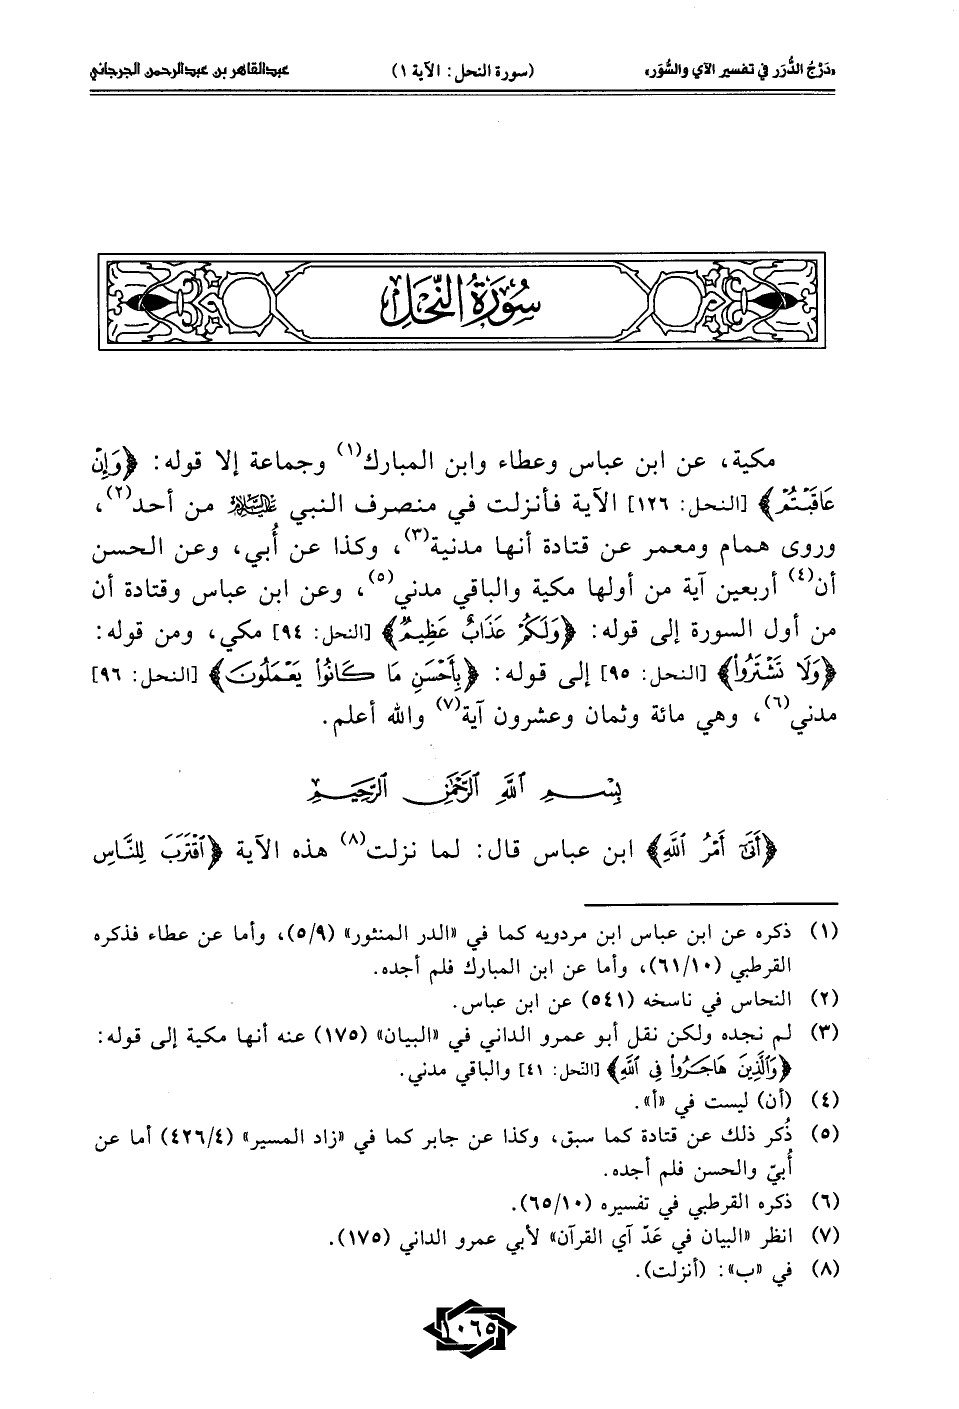 «دَرْجُ الدُّرَر في تفسير الآي والسُّوَر» (سورة النحل: الآية ١) عبدالقاهر بن عبدالرحمن الجرجاني
سُورَةُ النَّحْلِ
مكية، عن ابن عباس وعطاء وابن المبارك(١) وجماعة إلا قوله: ﴿وَإِنْ
عَاقَبْتُمْ﴾ [النحل: ١٢٦] الآية فأنزلت في منصرف النبي عليه السلام من أحد(٢)،
وروى همام ومعمر عن قتادة أنها مدنية(٣)، وكذا عن أُبي، وعن الحسن
أن(٤) أربعين آية من أولها مكية والباقي مدني(٥)، وعن ابن عباس وقتادة أن
من أول السورة إلى قوله: ﴿وَلَكُمْ عَذَابٌ عَظِيمٌ﴾ [النحل: ٩٤] مكي، ومن قوله:
﴿وَلَا تَشْتَرُوا۟﴾ [النحل: ٩٥] إلى قوله: ﴿بِأَحْسَنِ مَا كَانُوا۟ يَعْمَلُونَ﴾ [النحل: ٩٦]
مدني(٦)، وهي مائة وثمان وعشرون آية(٧) والله أعلم.
بِسْمِ ٱللَّهِ ٱلرَّحْمَٰنِ ٱلرَّحِيمِ
﴿أَتَىٰٓ أَمْرُ ٱللَّهِ﴾ ابن عباس قال: لما نزلت(٨) هذه الآية ﴿ٱقْتَرَبَ لِلنَّاسِ
(١) ذكره عن ابن عباس ابن مردويه كما في «الدر المنثور» (٥/٩)، وأما عن عطاء فذكره
القرطبي (٦١/١٠)، وأما عن ابن المبارك فلم أجده.
(٢) النحاس في ناسخه (٥٤١) عن ابن عباس.
(٣) لم نجده ولكن نقل أبو عمرو الداني في «البيان» (١٧٥) عنه أنها مكية إلى قوله:
﴿وَٱلَّذِينَ هَاجَرُوا۟ فِى ٱللَّهِ﴾ [النّحل: ٤١] والباقي مدني.
(٤) (أن) ليست في «أ».
(٥) ذُكر ذلك عن قتادة كما سبق، وكذا عن جابر كما في «زاد المسير» (٤٢٦/٤) أما عن
أُبيّ والحسن فلم أجده.
(٦) ذكره القرطبي في تفسيره (٦٥/١٠).
(٧) انظر «البيان في عَدّ آي القرآن» لأبي عمرو الداني (١٧٥).
(٨) في «ب»: (أنزلت).
١٠٦٥